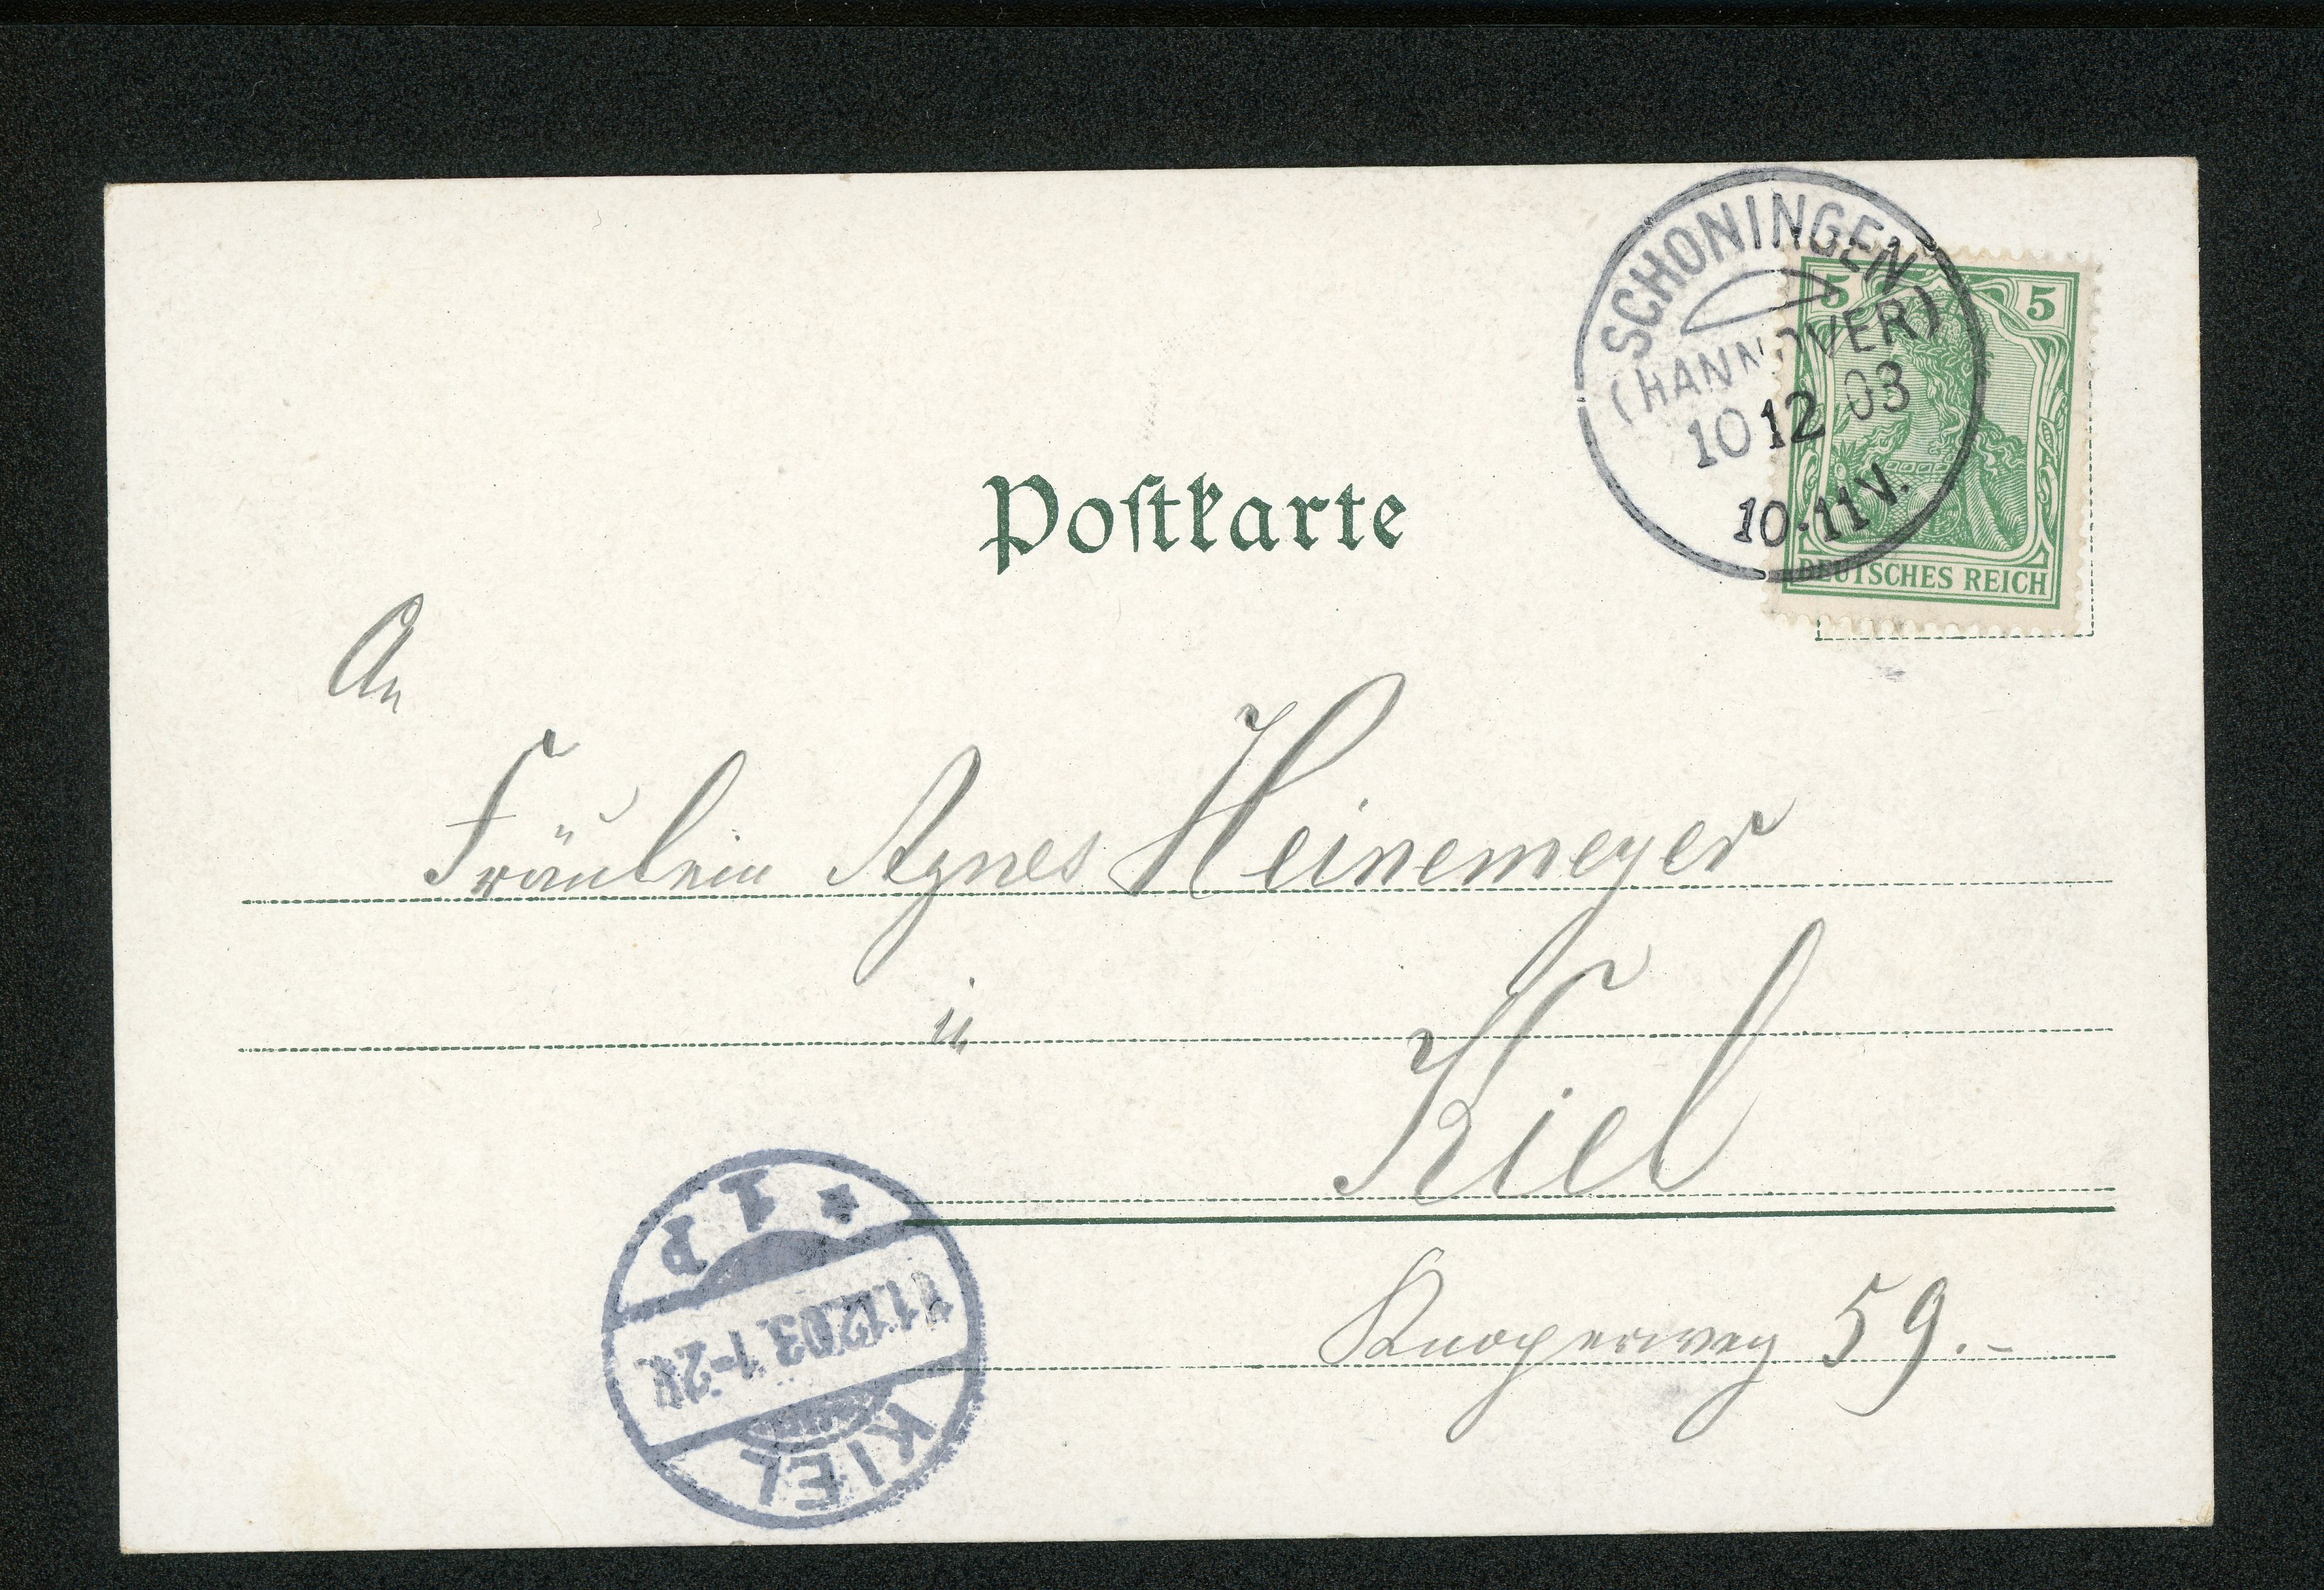 SCHONINGEN
(HANNOVER)
10 12 03
10-11 V.
5 5
DEUTSCHES REICH
Poſtkarte
An
Fräulein Agnes Heinemeyer
in
Kiel
Knooperweg 59.-
KIEL
11.12.03. 1-2N.
* 1 P